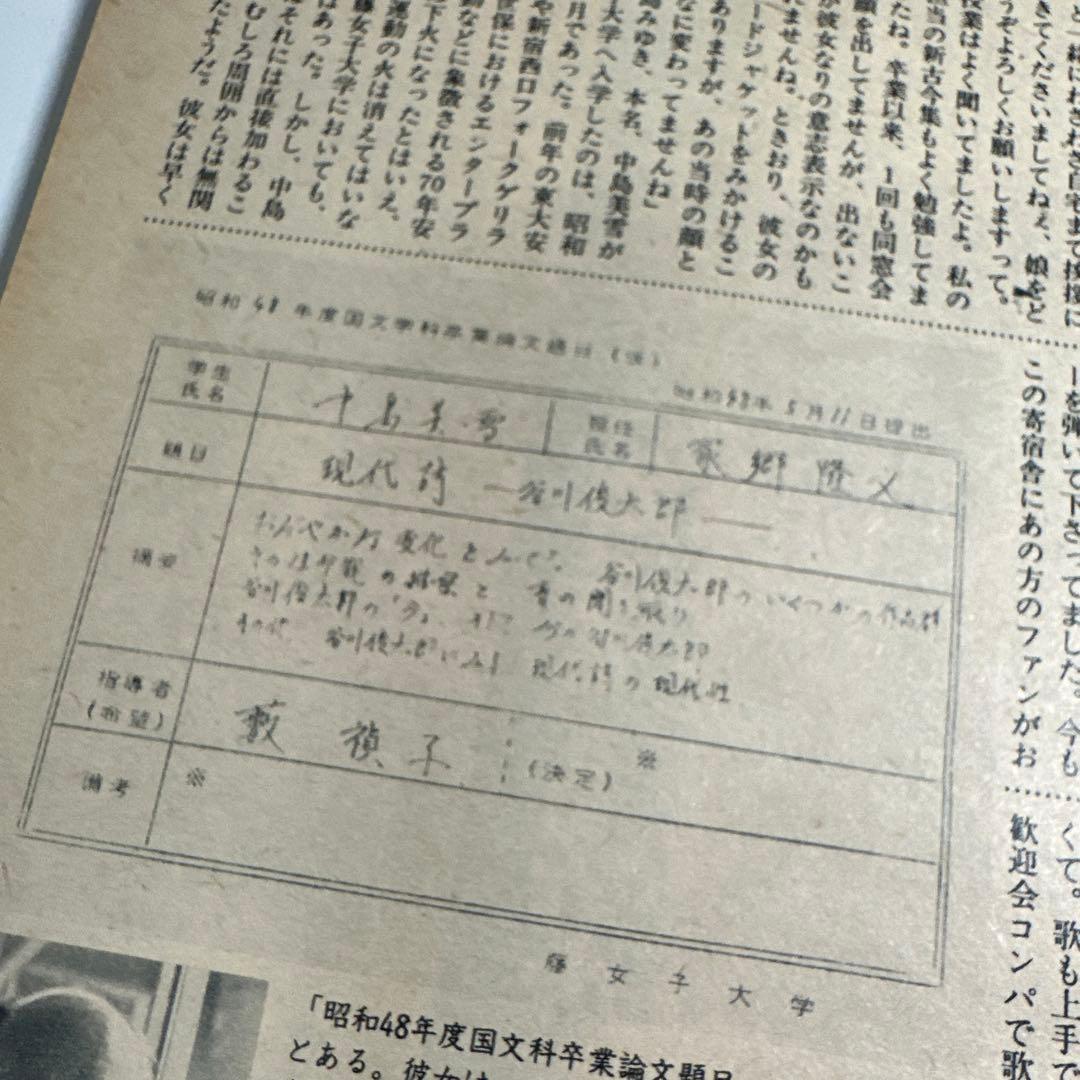 と一緒にわざわざ自宅まで挨拶に
きてくださいましてねぇ、娘をど
うぞよろしくお願いしますって。
授業はよく聞いてましたよ。私の
担当の新古今集もよく勉強してま
したね。卒業以来、1回も同窓会
顔を出してませんが、出ないこ
が彼女なりの意志表示なのかも
れませんね。ときおり、彼女の
ードジャケットをみかけるこ
ありますが、あの当時の顔と
なに変わってませんね」
島みゆき、本名、中島美雪が
大学へ入学したのは、昭和
月であった。前年の東大安
や新宿西口フォークゲリラ
世保におけるエンタープラ
動などに象徴される70年安
運動の火は消えてはいな
下火になったとはいえ。
藤女子大学においても、
はあった。しかし、中島
それには直接加わるこ
むしろ周囲からは無関
たようだ。彼女は早く
昭和48年度国文学科卒業論文題目(仮)
昭和48年5月11日提出
学生氏名 中島美雪 担任氏名 家郷隆文
題目 現代詩 ―谷川俊太郎―
摘要
谷川俊太郎のいくつかの作品群
谷川俊太郎の
谷川俊太郎
谷川俊太郎にみる 現代詩の現代性
指導者(希望) 藪 禎子 (決定) ※
備考 ※
藤女子大学
ーを弾いて下さってました。今も
この寄宿舎にあの方のファンがお
くて。歌も上手で
歓迎会コンパで歌
「昭和48年度国文科卒業論文題目
とある。彼女は